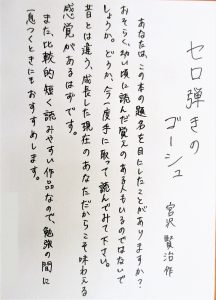 セロ弾きの
ゴーシュ
宮沢 賢治 作
あなたは、この本の題名を目にしたことがありますか?
おそらく、幼い頃に読んだ覚えのある人もいるのではないで
しょうか。どうか、今一度手に取って読んでみて下さい。
昔とは違う、成長した現在のあなただからこそ味わえる
感覚があるはずです。
また、比較的短く読みやすい作品なので、勉強の間に
一息つくときにもおすすめします。